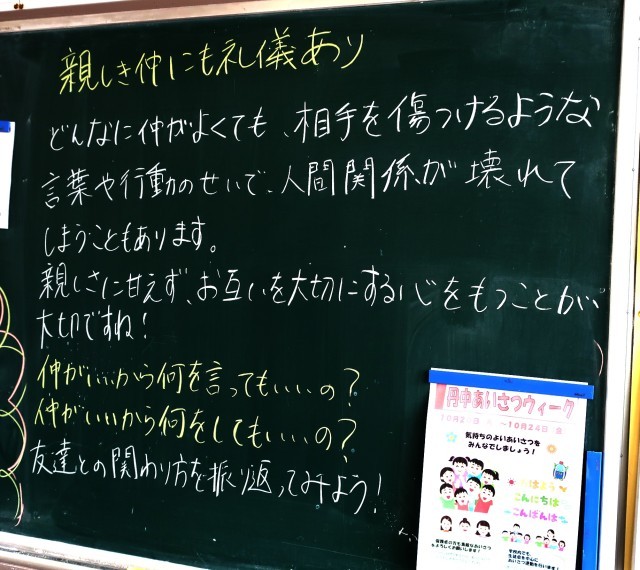 親しき仲にも礼儀あり
どんなに仲がよくても、相手を傷つけるような
言葉や行動のせいで、人間関係が壊れて
しまうこともあります。
親しさに甘えず、お互いを大切にする心をもつことが、
大切ですね！
仲がいいから何を言ってもいいの？
仲がいいから何をしてもいいの？
友達との関わり方を振り返ってみよう！
丹中あいさつウィーク
～10月24日
気持ちのよいあいさつを
みんなでしましょう！
こんにちは
こんばんは